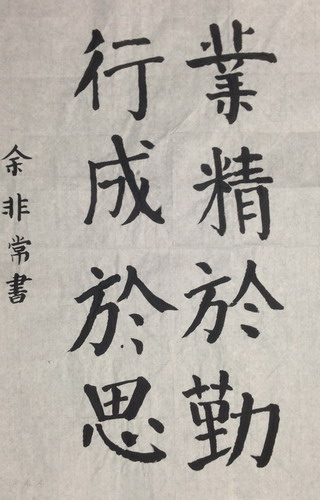 業精於勤
行成於思
余非常書